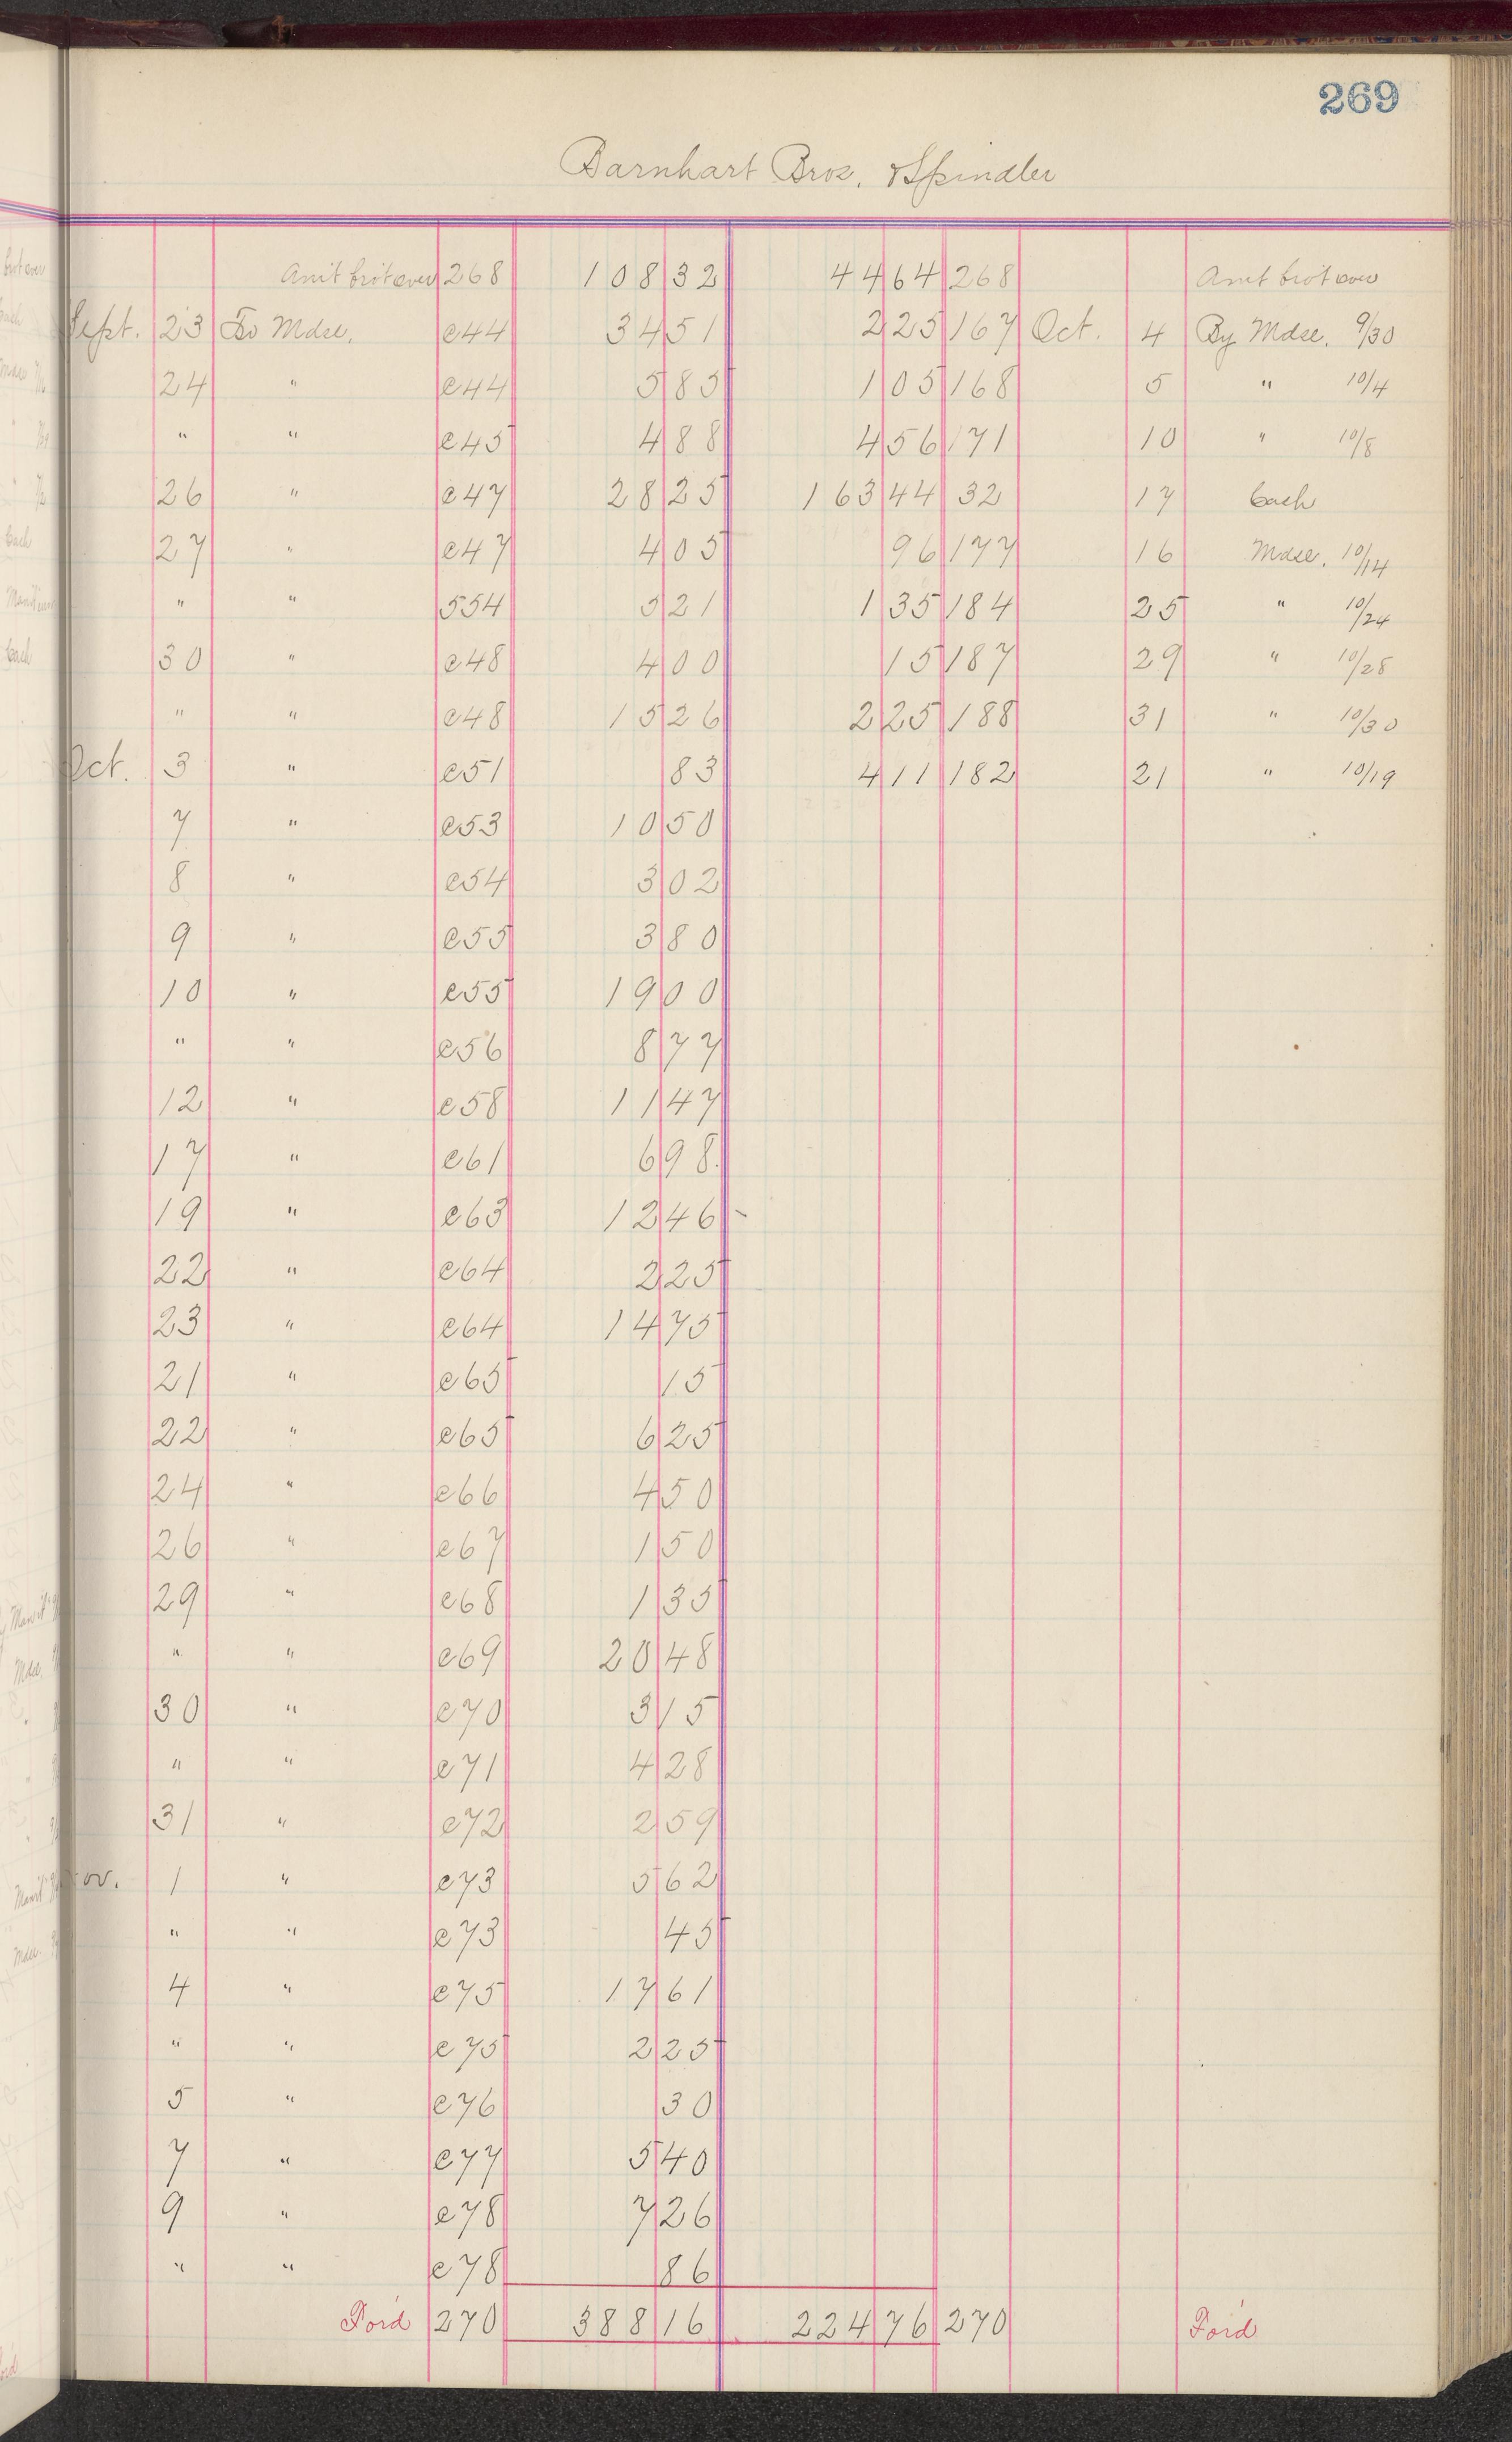 269
Barnhart Bros. & Spindler
Am't bro't over 268 108 32 44 64 268 Am't bro't over
Sept. 23 To Mdse. c44 34 51 2 25 167 Oct. 4 By Mdse. 9/30
24 " c44 5 85 1 05 168 5 " 10/4
" " c45 4 88 4 56 171 10 " 10/8
26 " c47 28 25 163 44 32 17 Cash
27 " c47 4 05 96 177 16 Mdse. 10/14
" " 554 5 21 1 35 184 25 " 10/24
30 " c48 4 00 15 187 29 " 10/28
" " c48 15 26 2 25 188 31 " 10/30
Oct. 3 " c51 83 4 11 182 21 " 10/19
7 " c53 10 50
8 " c54 3 02
9 " c55 3 80
10 " c55 19 00
" " c56 8 77
12 " c58 11 47
17 " c61 6 98
19 " c63 12 46
22 " c64 2 25
23 " c64 14 75
21 " c65 15
22 " c65 6 25
24 " c66 4 50
26 " c67 1 50
29 " c68 1 35
" " c69 20 48
30 " c70 3 15
" " c71 4 28
31 " c72 2 59
ov. 1 " c73 5 62
" " c73 45
4 " c75 17 61
" " c75 2 25
5 " c76 30
7 " c77 5 40
9 " c78 7 26
" " c78 86
For'd 270 388 16 224 76 270 For'd